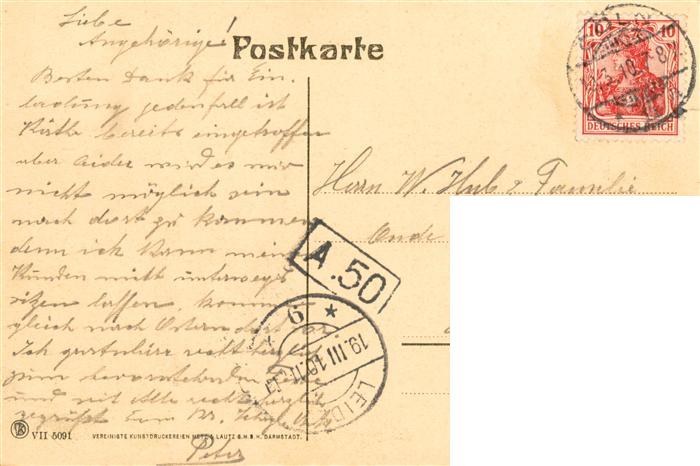 Liebe
Angehörige!
Postkarte
Besten Dank für Ein-
ladung jedenfall ist
Käthe bereits eingetroffen
aber leider wird es mir
nicht möglich sein
nach dort zu kommen
denn ich kann mein
Kunden nicht unterwegs
sitzen lassen, komme
gleich nach Ostern dort vor
Ich gratuliere recht herzlich
zum bevorstehenden
und mit Alle recht herzlich
gegrüßt Eur
Peter
10 10
DEUTSCHES REICH
Herrn W. Hub & Familie
Oude
A.50
6
19.III.10
LEID
VII 5091
VEREINIGTE KUNSTDRUCKEREIEN METZ & LAUTZ G.M.B.H. DARMSTADT.